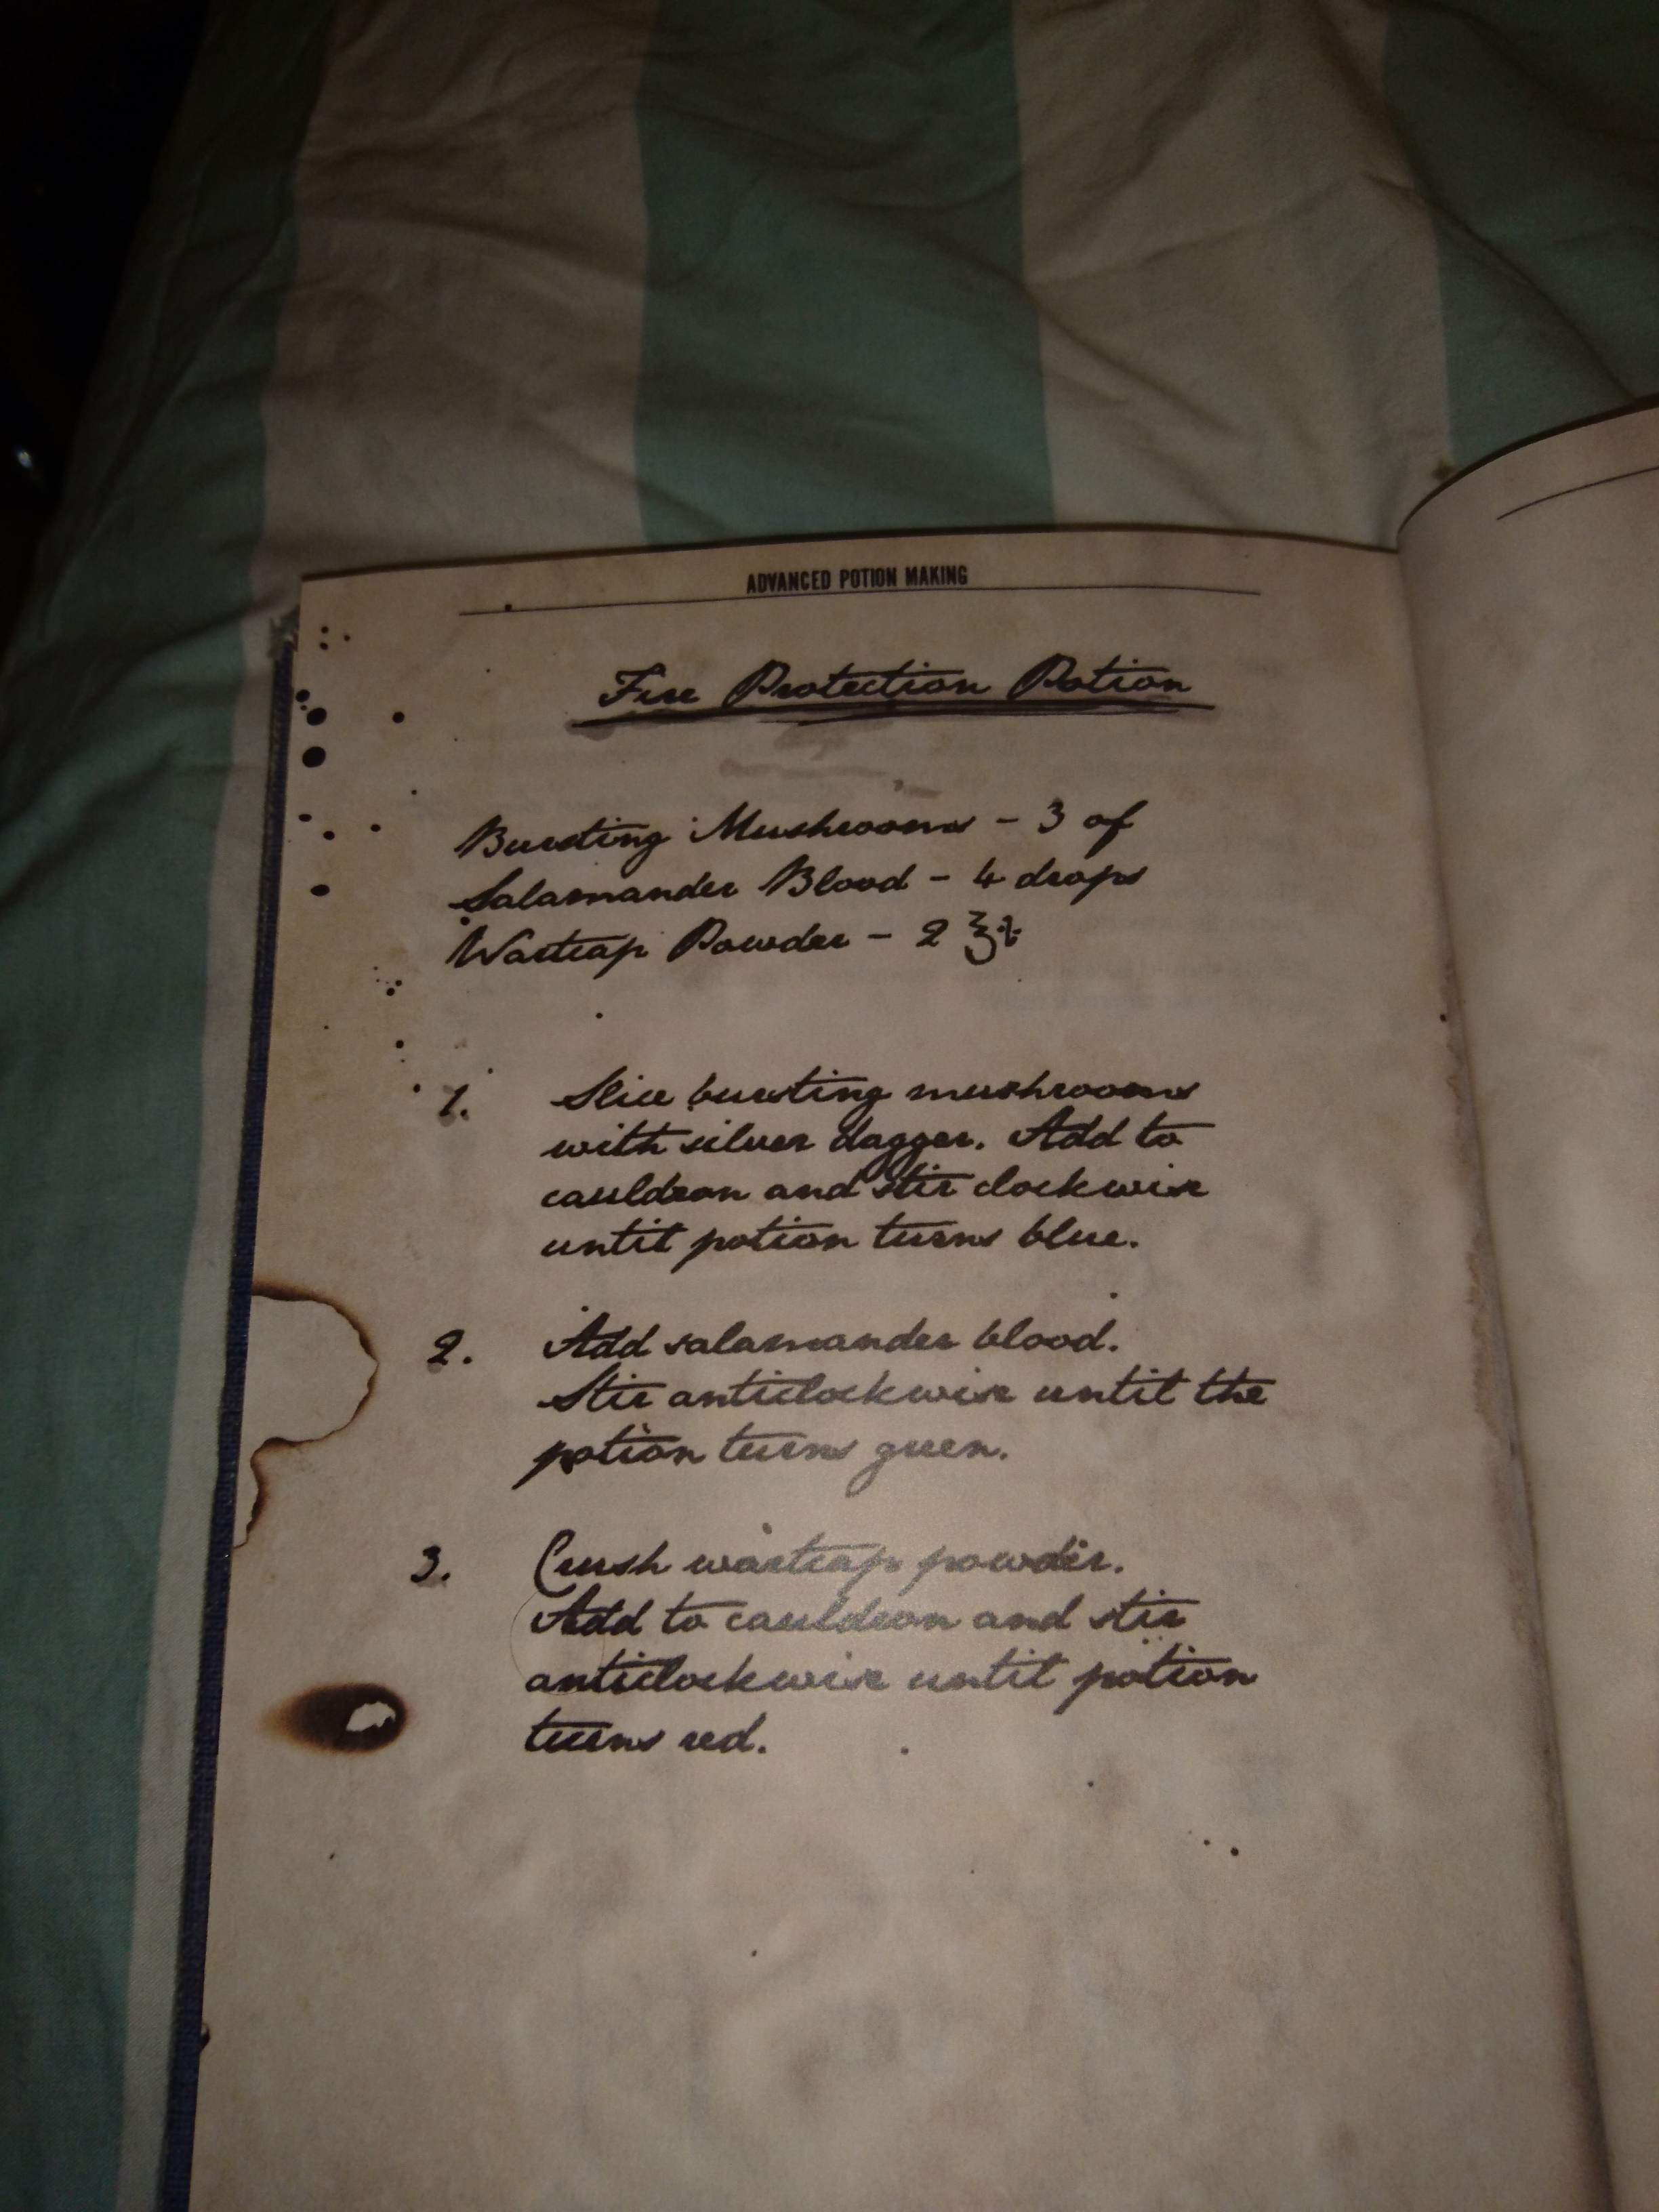 ADVANCED POTION MAKING
Fire Protection Potion
Bursting Mushrooms - 3 of
Salamander Blood - 4 drops
Wartcap Powder - 2
1. Slice bursting mushrooms
with silver dagger. Add to
cauldron and stir clockwise
until potion turns blue.
2. Add salamander blood.
Stir anticlockwise until the
potion turns green.
3. Crush wartcap powder.
Add to cauldron and stir
anticlockwise until potion
turns red.